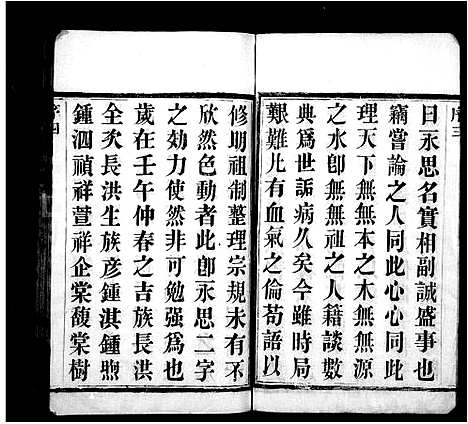 序三
曰永思名實相副誠盛事也
竊嘗論之人同此心心同此
理天下無無本之木無無源
之水卽無無祖之人籍談數
典爲世詬病久矣今雖時局
艱難凡有血氣之倫苟語以
修明祖制整理宗規未有不
欣然色動者此卽永思二字
之効力使然非可勉强爲也
歲在壬午仲春之吉族長洪
全次長洪生族彥鍾淇鍾煦
鍾泗禎祥萱祥企棠馥棠樹
序四